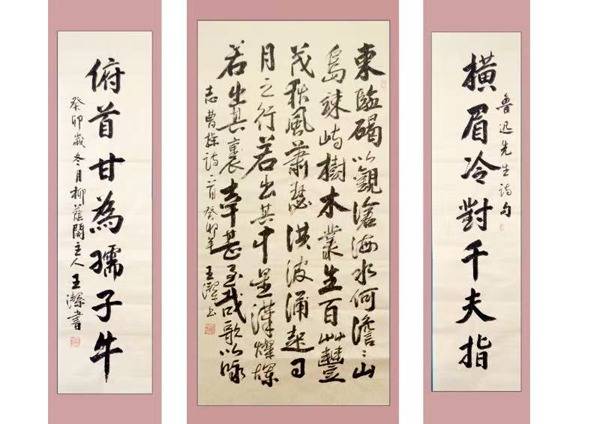 魯迅先生詩句
橫眉冷對千夫指
東臨碣以觀滄海水何澹〻山
島竦峙樹木叢生百艸豐
茂秋風蕭瑟洪波涌起日
月之行若出其中星漢燦爛
若出其裏幸甚至哉歌以詠
志曹操詩一首癸卯王潔書
俯首甘為孺子牛
癸卯歲冬月柳蔭閣主人王潔書